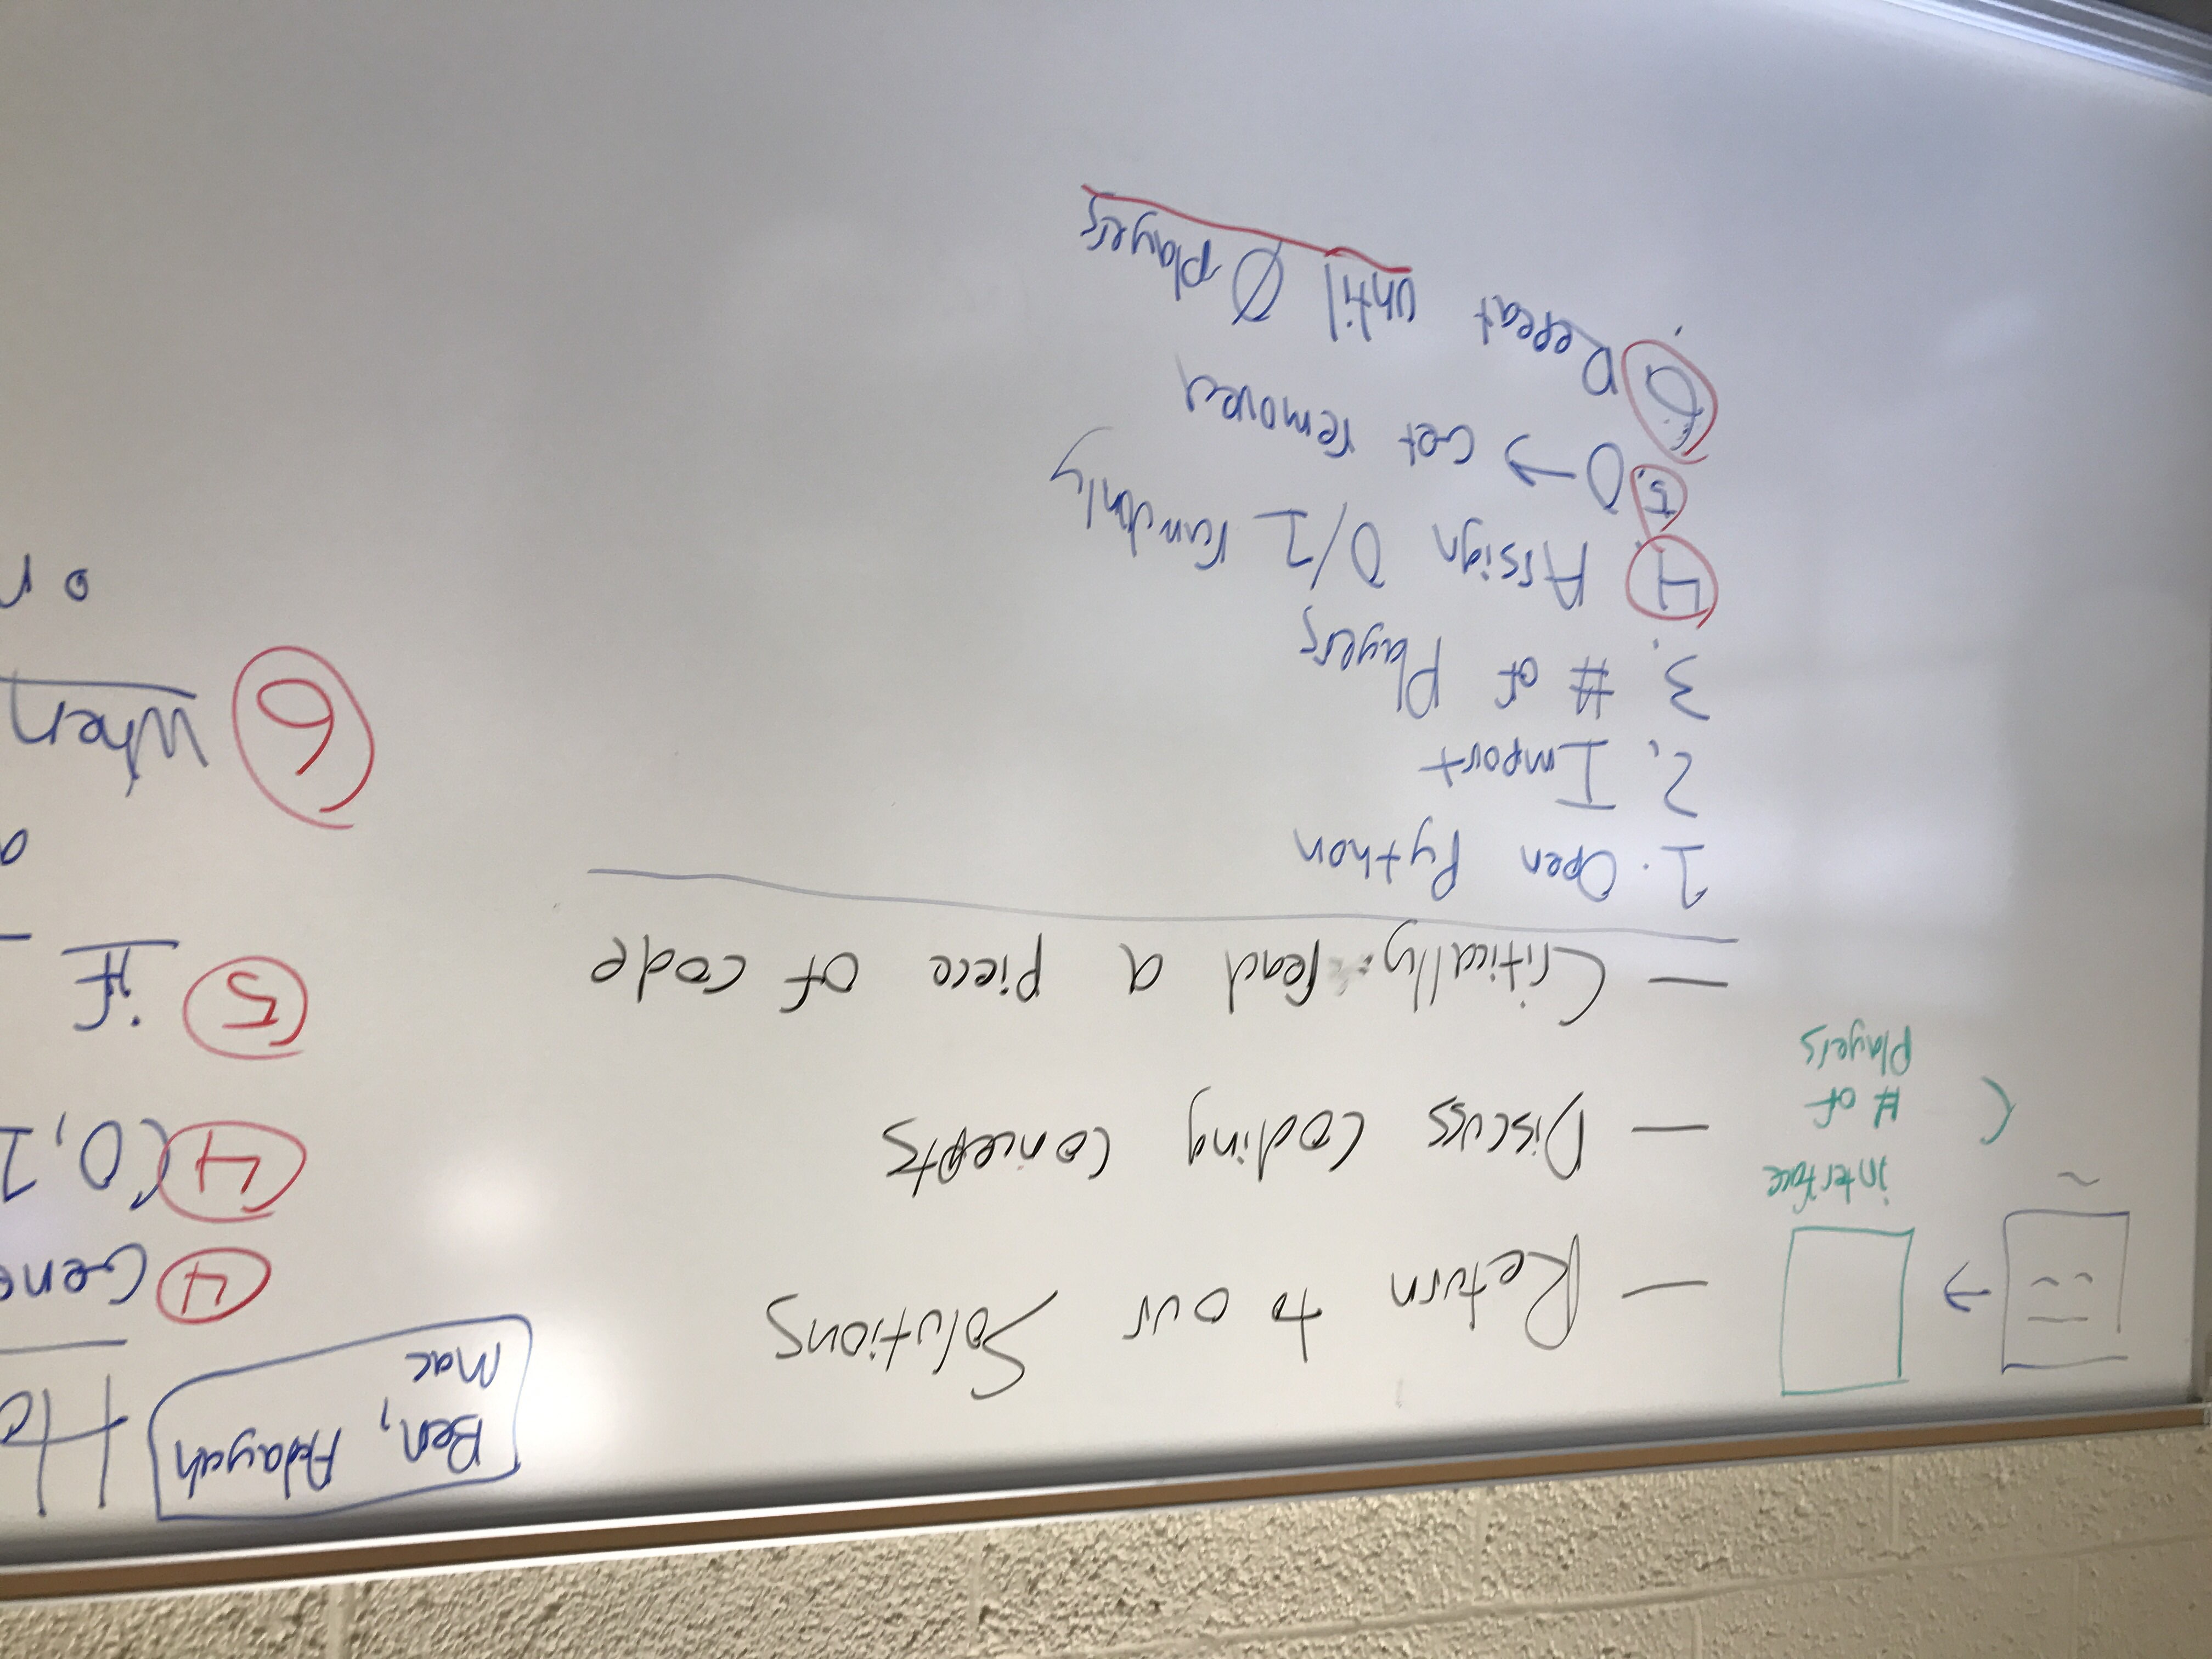 interface
# of
Players
— Return to our Solutions
— Discuss Coding Concepts
— Critically read a piece of code
1. Open Python
2. Import
3. # of Players
4. Assign 0/1 randomly
5. 0 → Get removed
6. Repeat until Ø players
Ben, Adayah
Mac
④
④ (0, 1
⑤ if
⑥ When
or